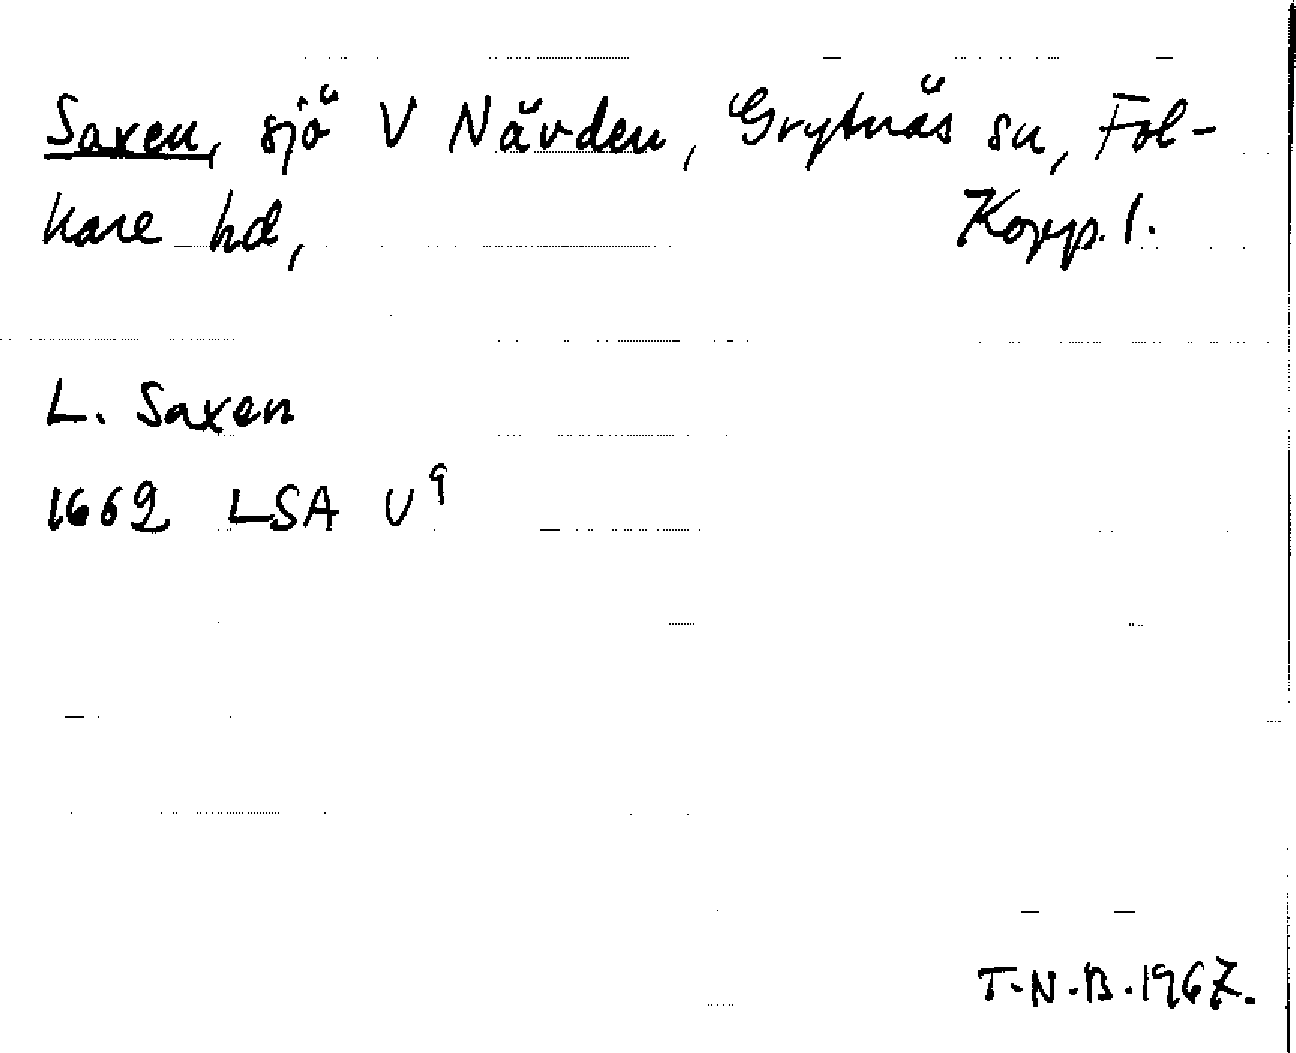 Saxen, sjö V Nävden, Grytnäs sn, Fol-
kare hd, Kopp. l.
L. Saxen
1662 LSA U⁹
T.N.B. 1967.